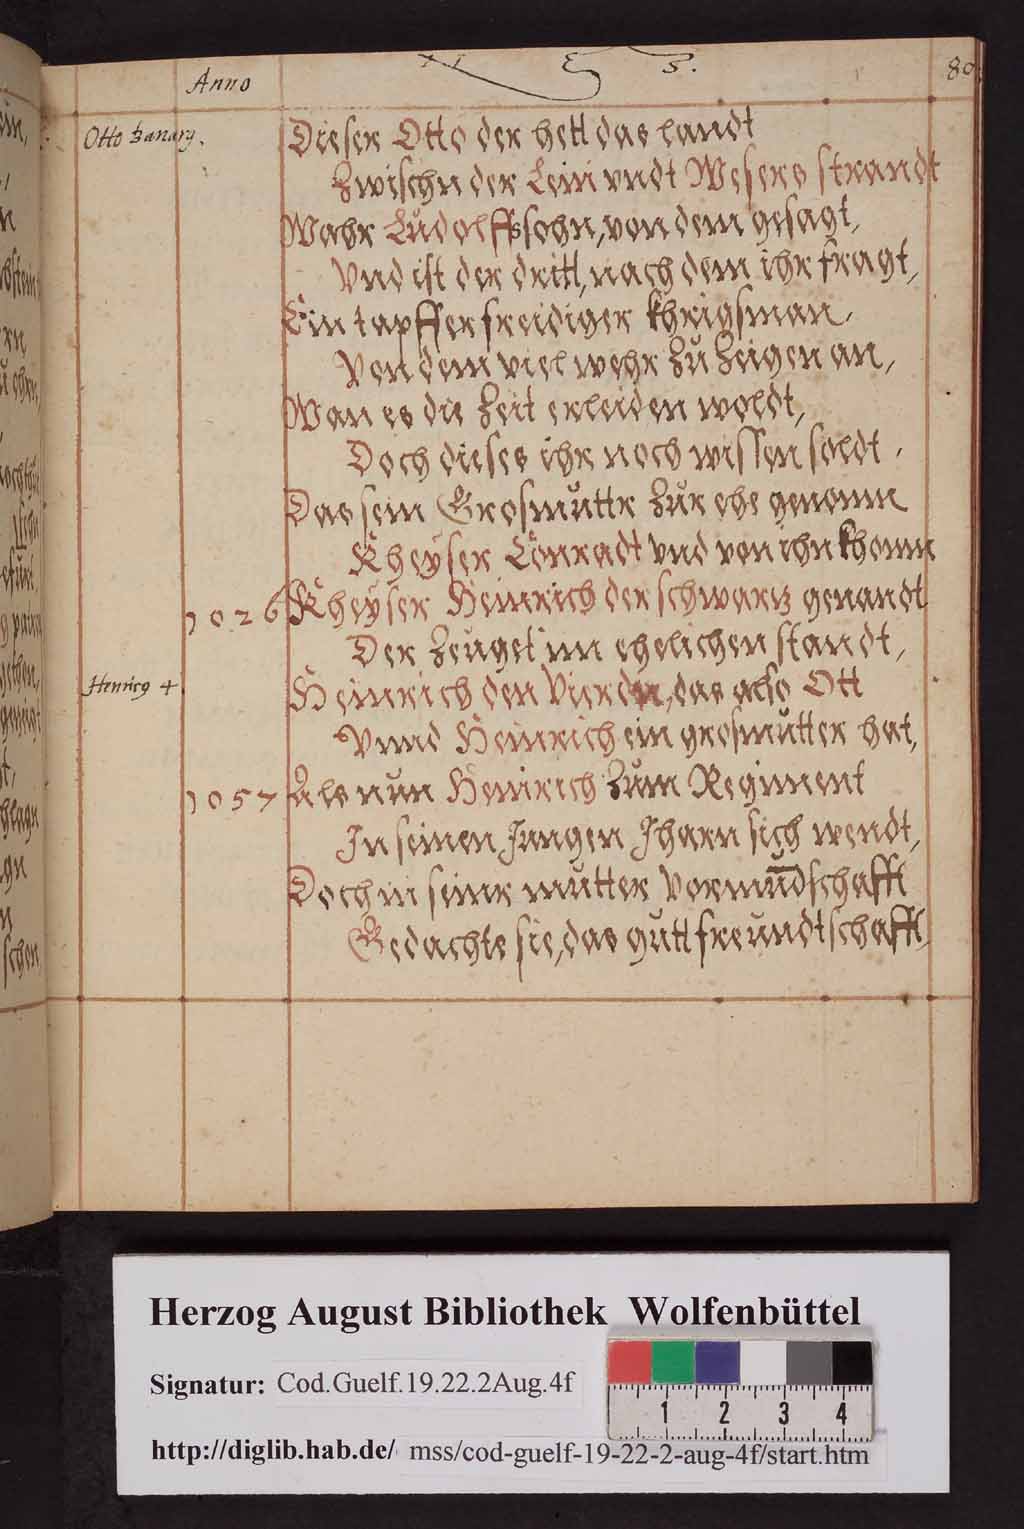 Anno
5.
80.
Otto
Dieser Otto der hett das landt
Zwischn der Lein vndt Wesers strandt
Wahr Ludolffs sohn, von dem gesagt,
Vnd ist der dritt, nach dem ihr fragt,
Ein tapffer freidiger khrigsman.
Von dem viel wehr zu zeigen an,
Wan es die Zeit erleiden woldt,
Doch dieses ihr noch wissen soldt.
Das sein Grosmuttr zur ehe genomn
Kheyser Conradt vnd von ihn khomn
1026 Kheyser Heinrich der schwartz genandt
Der zeuget im ehelichen standt,
Henricg 4.
Heinrich den Vierdn, das also Ott
Vnnd Heinrich ein grosmutter hat,
1057 Als nun Heinrich zum Regiment
In seinen Jungen Jharn sich wendt,
Doch in seinr mutter Vormundschafft
Gedachte sie, das gutt freundtschafft,
Herzog August Bibliothek Wolfenbüttel
Signatur: Cod.Guelf.19.22.2Aug.4f
1 2 3 4
http://diglib.hab.de/ mss/cod-guelf-19-22-2-aug-4f/start.htm